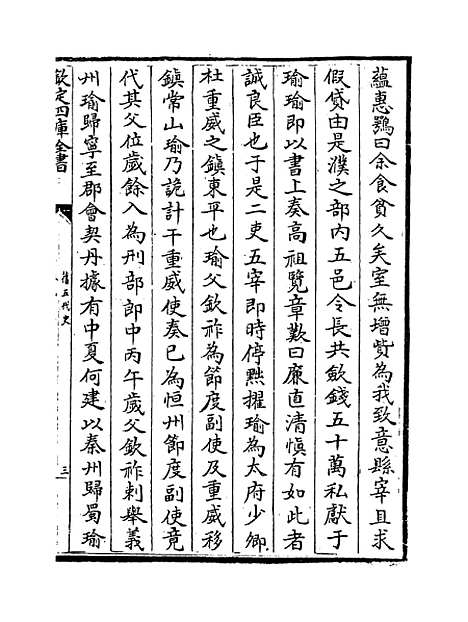 蘊惠鶚曰余食貧久矣室無增貲為我致意縣宰且求
假貸由是濮之部内五邑令長共歛錢五十萬私獻于
瑜瑜即以書上奏高祖覽章歎曰廉直清愼有如此者
誠良臣也于是二吏五宰即時停黜擢瑜為太府少卿
杜重威之鎮東平也瑜父欽祚為節度副使及重威移
鎮常山瑜乃詭計干重威使奏已為恒州節度副使竟
代其父位歲餘入為刑部郎中丙午歲父欽祚刺舉義
州瑜歸寧至郡會契丹據有中夏何建以秦州歸蜀瑜
欽定四庫全書
舊五代史
三